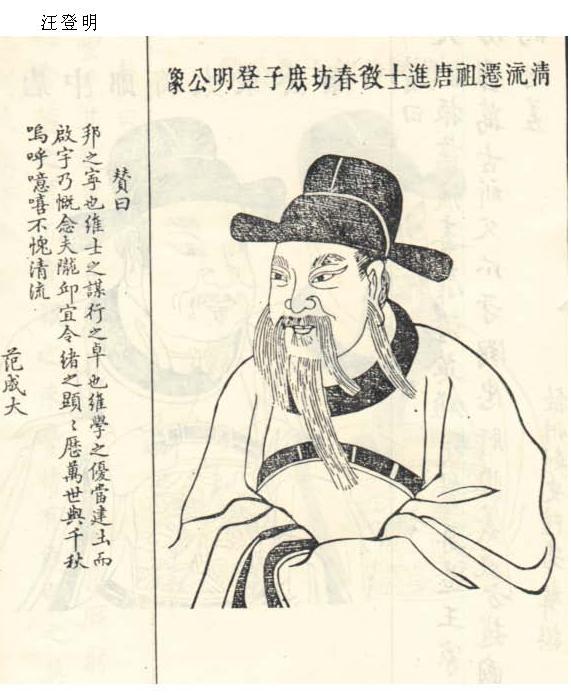 汪登明
清流遷祖唐進士徵春坊庶子登明公像
贊曰
邦之寧也維士之謀行之卓也維學之優當建土而
啟宇乃慨念夫隴邱宜令緒之顯〻歷萬世與千秋
嗚呼噫嘻不愧清流
范成大